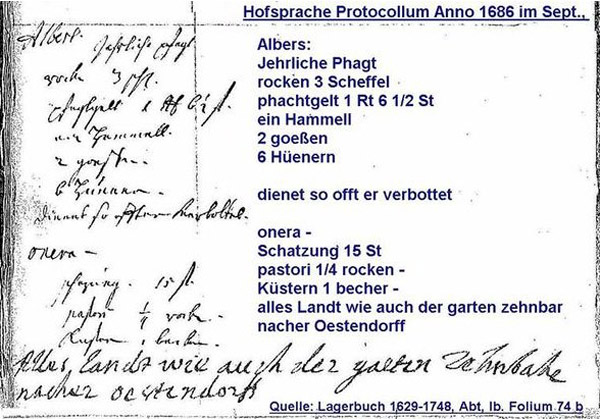 Hofsprache Protocollum Anno 1686 im Sept.,
Albers.
Jehrliche phagt
3
1 Rt 6 ½ st.
ein Hammell.
2 goeßen
6 Hüener -
dienet so offt er verbottet.
onera -
15 st.
pastori ¼ rock -
1 becher -
Alles landt wie auch der garten
nacher oestendorff
Albers:
Jehrliche Phagt
rocken 3 Scheffel
phachtgelt 1 Rt 6 1/2 St
ein Hammell
2 goeßen
6 Hüenern
dienet so offt er verbottet
onera -
Schatzung 15 St
pastori 1/4 rocken -
Küstern 1 becher -
alles Landt wie auch der garten zehnbar
nacher Oestendorff
Quelle: Lagerbuch 1629-1748, Abt, Ib. Folium 74 b